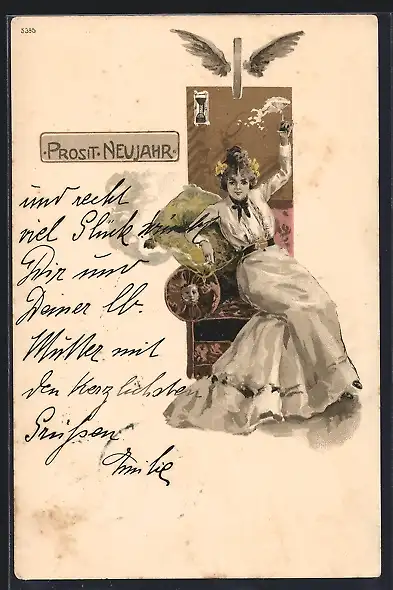 5385
PROSIT NEUJAHR
und recht
viel Glück wünscht
Dir und
Deiner lb.
Mutter mit
den herzlichsten
Grüßen
Emilie